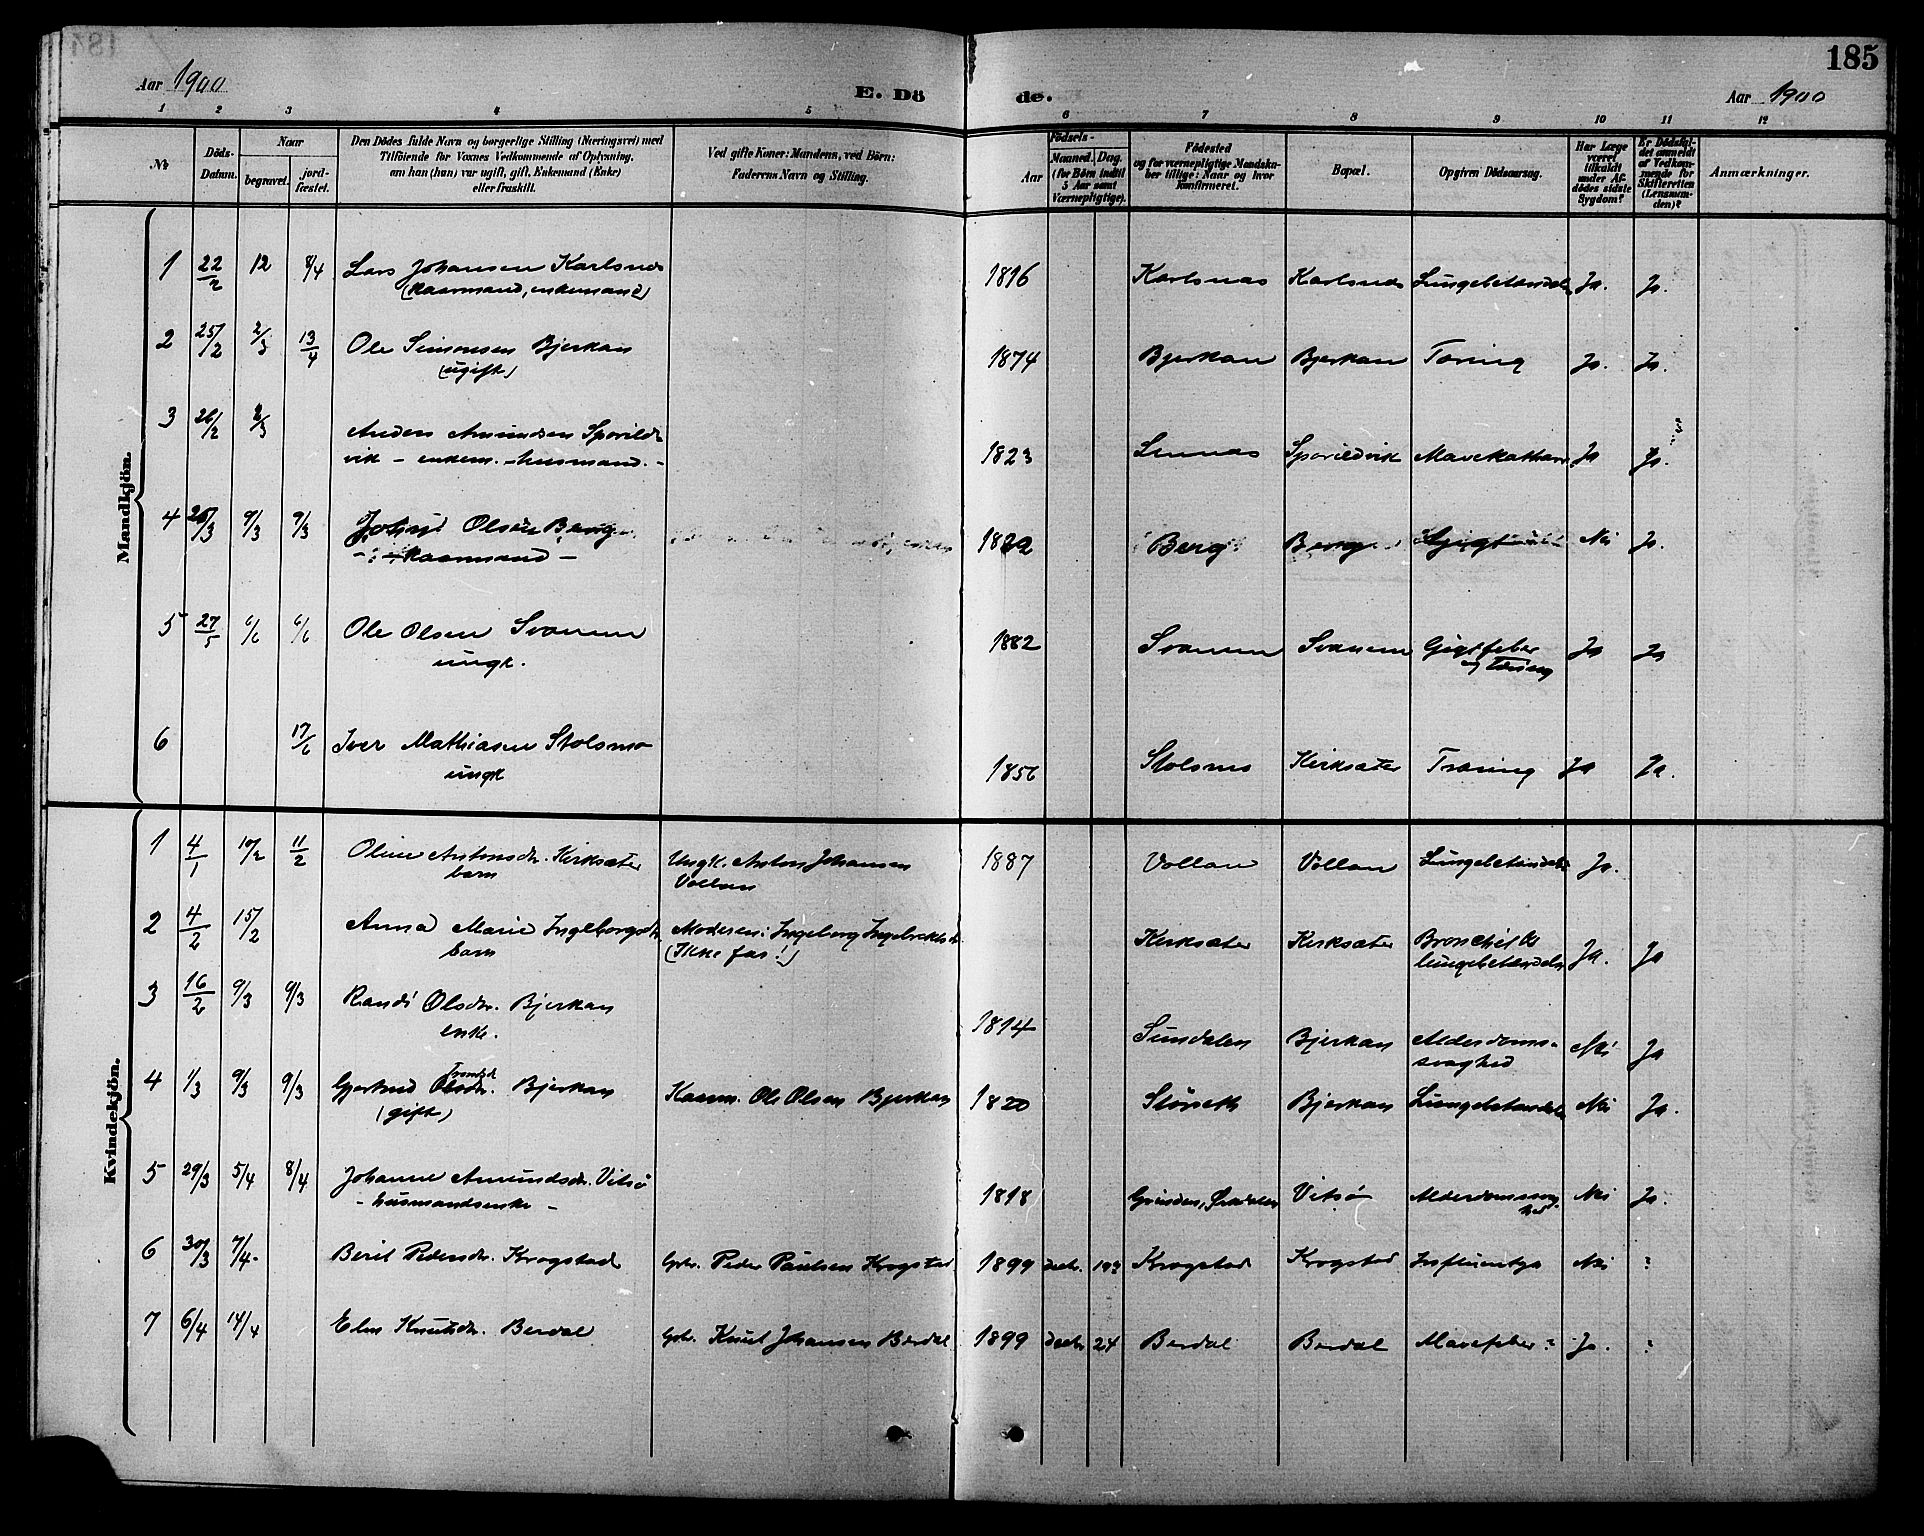 185
Aar 1900
E. Dö
de.
Aar 1900
1 2 3 4 5 6 7 8 9 10 11 12
№
Döds-
Datum.
Naar
begravet.
jord-
fæstet.
Den Dödes fulde Navn og borgerlige Stilling (Næringsvei) med
Tilföiende for Voxnes Vedkommende af Oplysning,
om han (hun) var ugift, gift, Enkemand (Enke)
eller fraskilt.
Ved gifte Koner: Mandens, ved Börn:
Faderens Navn og Stilling.
Födsels-
Aar
Maaned.
Dag.
(for Börn indtil
5 Aar samt
Værnepligtige).
Födested
og for værnepligtige Mandska-
ber tillige: Naar og hvor
konfirmeret.
Bopæl.
Opgiven Dödsaarsag.
Har Læge
været
tilkaldt
under Af-
dödes sidste
Sygdom?
Er Dödsfal-
det anmeldt
af Vedkom-
mende for
Skifteretten
(Lensman-
den)?
Anmærkninger.
Mandkjön.
1 22/2 12 8/4 Lars Johansen Karlsnes 1816 Karlsnas Karlsnes Lungebetændelse Ja. Ja.
(Kaarmand, enkemand)
2 25/2 2/3 13/4 Ole Simonsen Bjerkan 1874 Bjerkan Bjerkan Tæring Ja. Ja.
(ugift)
3 26/2 2/3 Anders Amundsen Spovild-
vik - enkem. - husmand. - 1823 Spovildvik Mavekathar Ja Ja.
4 9/3 9/3 Olsen Berg 18 Berg Berg Nei Ja.
- Kaarmand -
5 27/5 6/6 6/6 Ole Olsen Svanem 1882 Svanem Svanem Gigtfeber Ja Ja
ungk. og Tæring
6 17/6 Iver Mathiasen Stolsmo
ungk 1856 Stolsmo Kirksæter Træring Ja Ja.
Kvindekjön.
1 4/1 10/2 11/2 Oline Antonsdr. Kirksæter Ungk. Anton Johansen 1887 Vollan Vollan Lungebetændelse Ja.
barn Vollan
2 4/2 15/2 Anna Marie Ingeborgsdr. Moderen: Ingeborg Ingebrektsdr. Kirksæter Kirksæter Bronchit &
barn (Ikke far!) lungebetændelse Ja. Ja
3 16/2 9/3 9/3 Randi Olsdr. Bjerkan 1814 Sundalen Bjerkan Alderdoms- Nei Ja
enke. svaghed
4 1/3 9/3 9/3 Gjertrud Olsdr. Bjerkan Kaarm. Ole Olsen Bjerkan 1820 Bjerkan Lungebetændelse Nei Ja.
(gift)
5 29/3 5/4 8/4 Johanne Amundsdr. Vitsö 1818 Vitsø Alderdomssvag- Nei Ja.
- husmandsenke - hed
6 30/3 7/4 Berit Pedersdr. Krogstad Gbr. Peder Paulsen Krogstad 1899 Decbr. Krogstad Krogstad Influentza Nei ?
7 6/4 14/4 Elen Knutsdr. Berdal Gbr. Knut Johansen Berdal 1899 Decbr 24 Berdal Berdal Mavefeber? Ja. ?